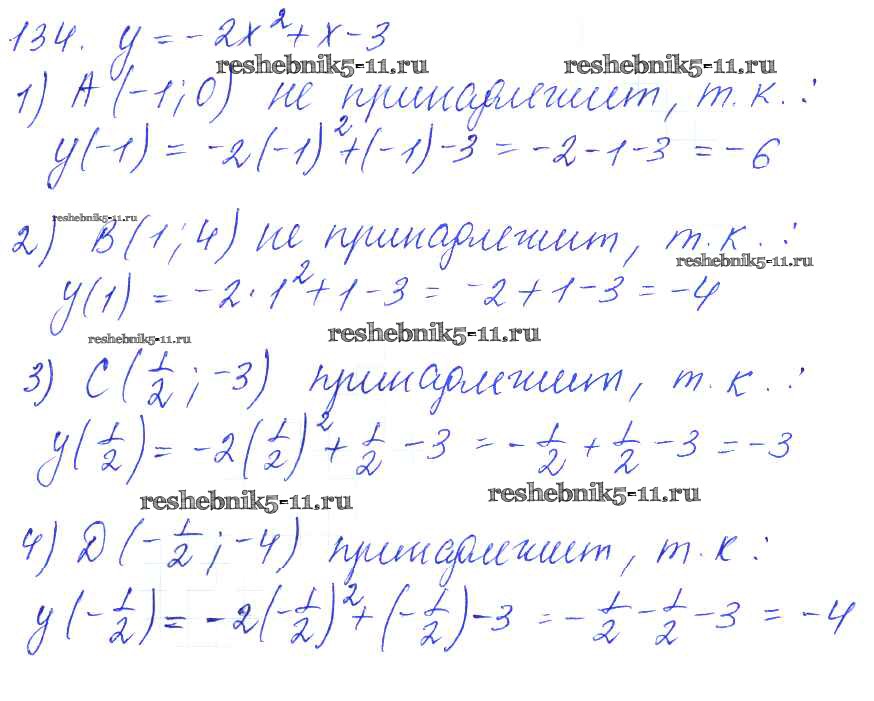 134. y = -2x² + x - 3
reshebnik5-11.ru reshebnik5-11.ru
1) A (-1; 0) не принадлежит, т.к.:
y(-1) = -2(-1)² + (-1) - 3 = -2 - 1 - 3 = -6
reshebnik5-11.ru
2) B (1; 4) не принадлежит, т.к.:
reshebnik5-11.ru
y(1) = -2 · 1² + 1 - 3 = -2 + 1 - 3 = -4
reshebnik5-11.ru reshebnik5-11.ru
3) C (1/2; -3) принадлежит, т.к.:
y(1/2) = -2(1/2)² + 1/2 - 3 = -1/2 + 1/2 - 3 = -3
reshebnik5-11.ru reshebnik5-11.ru
4) D (-1/2; -4) принадлежит, т.к:
y(-1/2) = -2(-1/2)² + (-1/2) - 3 = -1/2 - 1/2 - 3 = -4